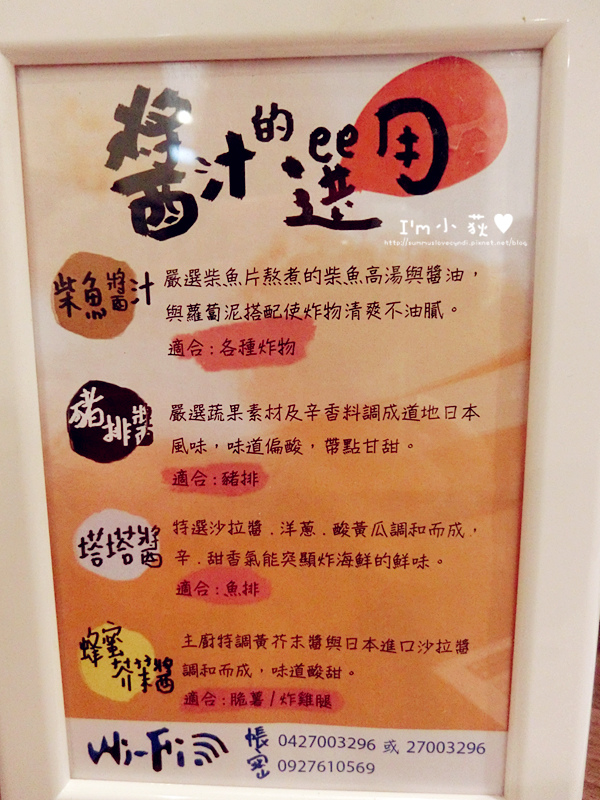 醬汁的選用
I'm 小荻♥
http://summerlovesyndi.pixnet.net/blog
柴魚醬汁
嚴選柴魚片熬煮的柴魚高湯與醬油，
與蘿蔔泥搭配使炸物清爽不油膩。
適合:各種炸物
豬排醬
嚴選蔬果素材及辛香料調成道地日本
風味，味道偏酸，帶點甘甜。
適合:豬排
塔塔醬
特選沙拉醬.洋蔥.酸黃瓜調和而成，
辛.甜香氣能突顯炸海鮮的鮮味。
適合:魚排
蜂蜜芥末醬
主廚特調黃芥末醬與日本進口沙拉醬
調和而成，味道酸甜。
適合:脆薯/炸雞腿
Wi-Fi
帳 0427003296 或 27003296
密 0927610569